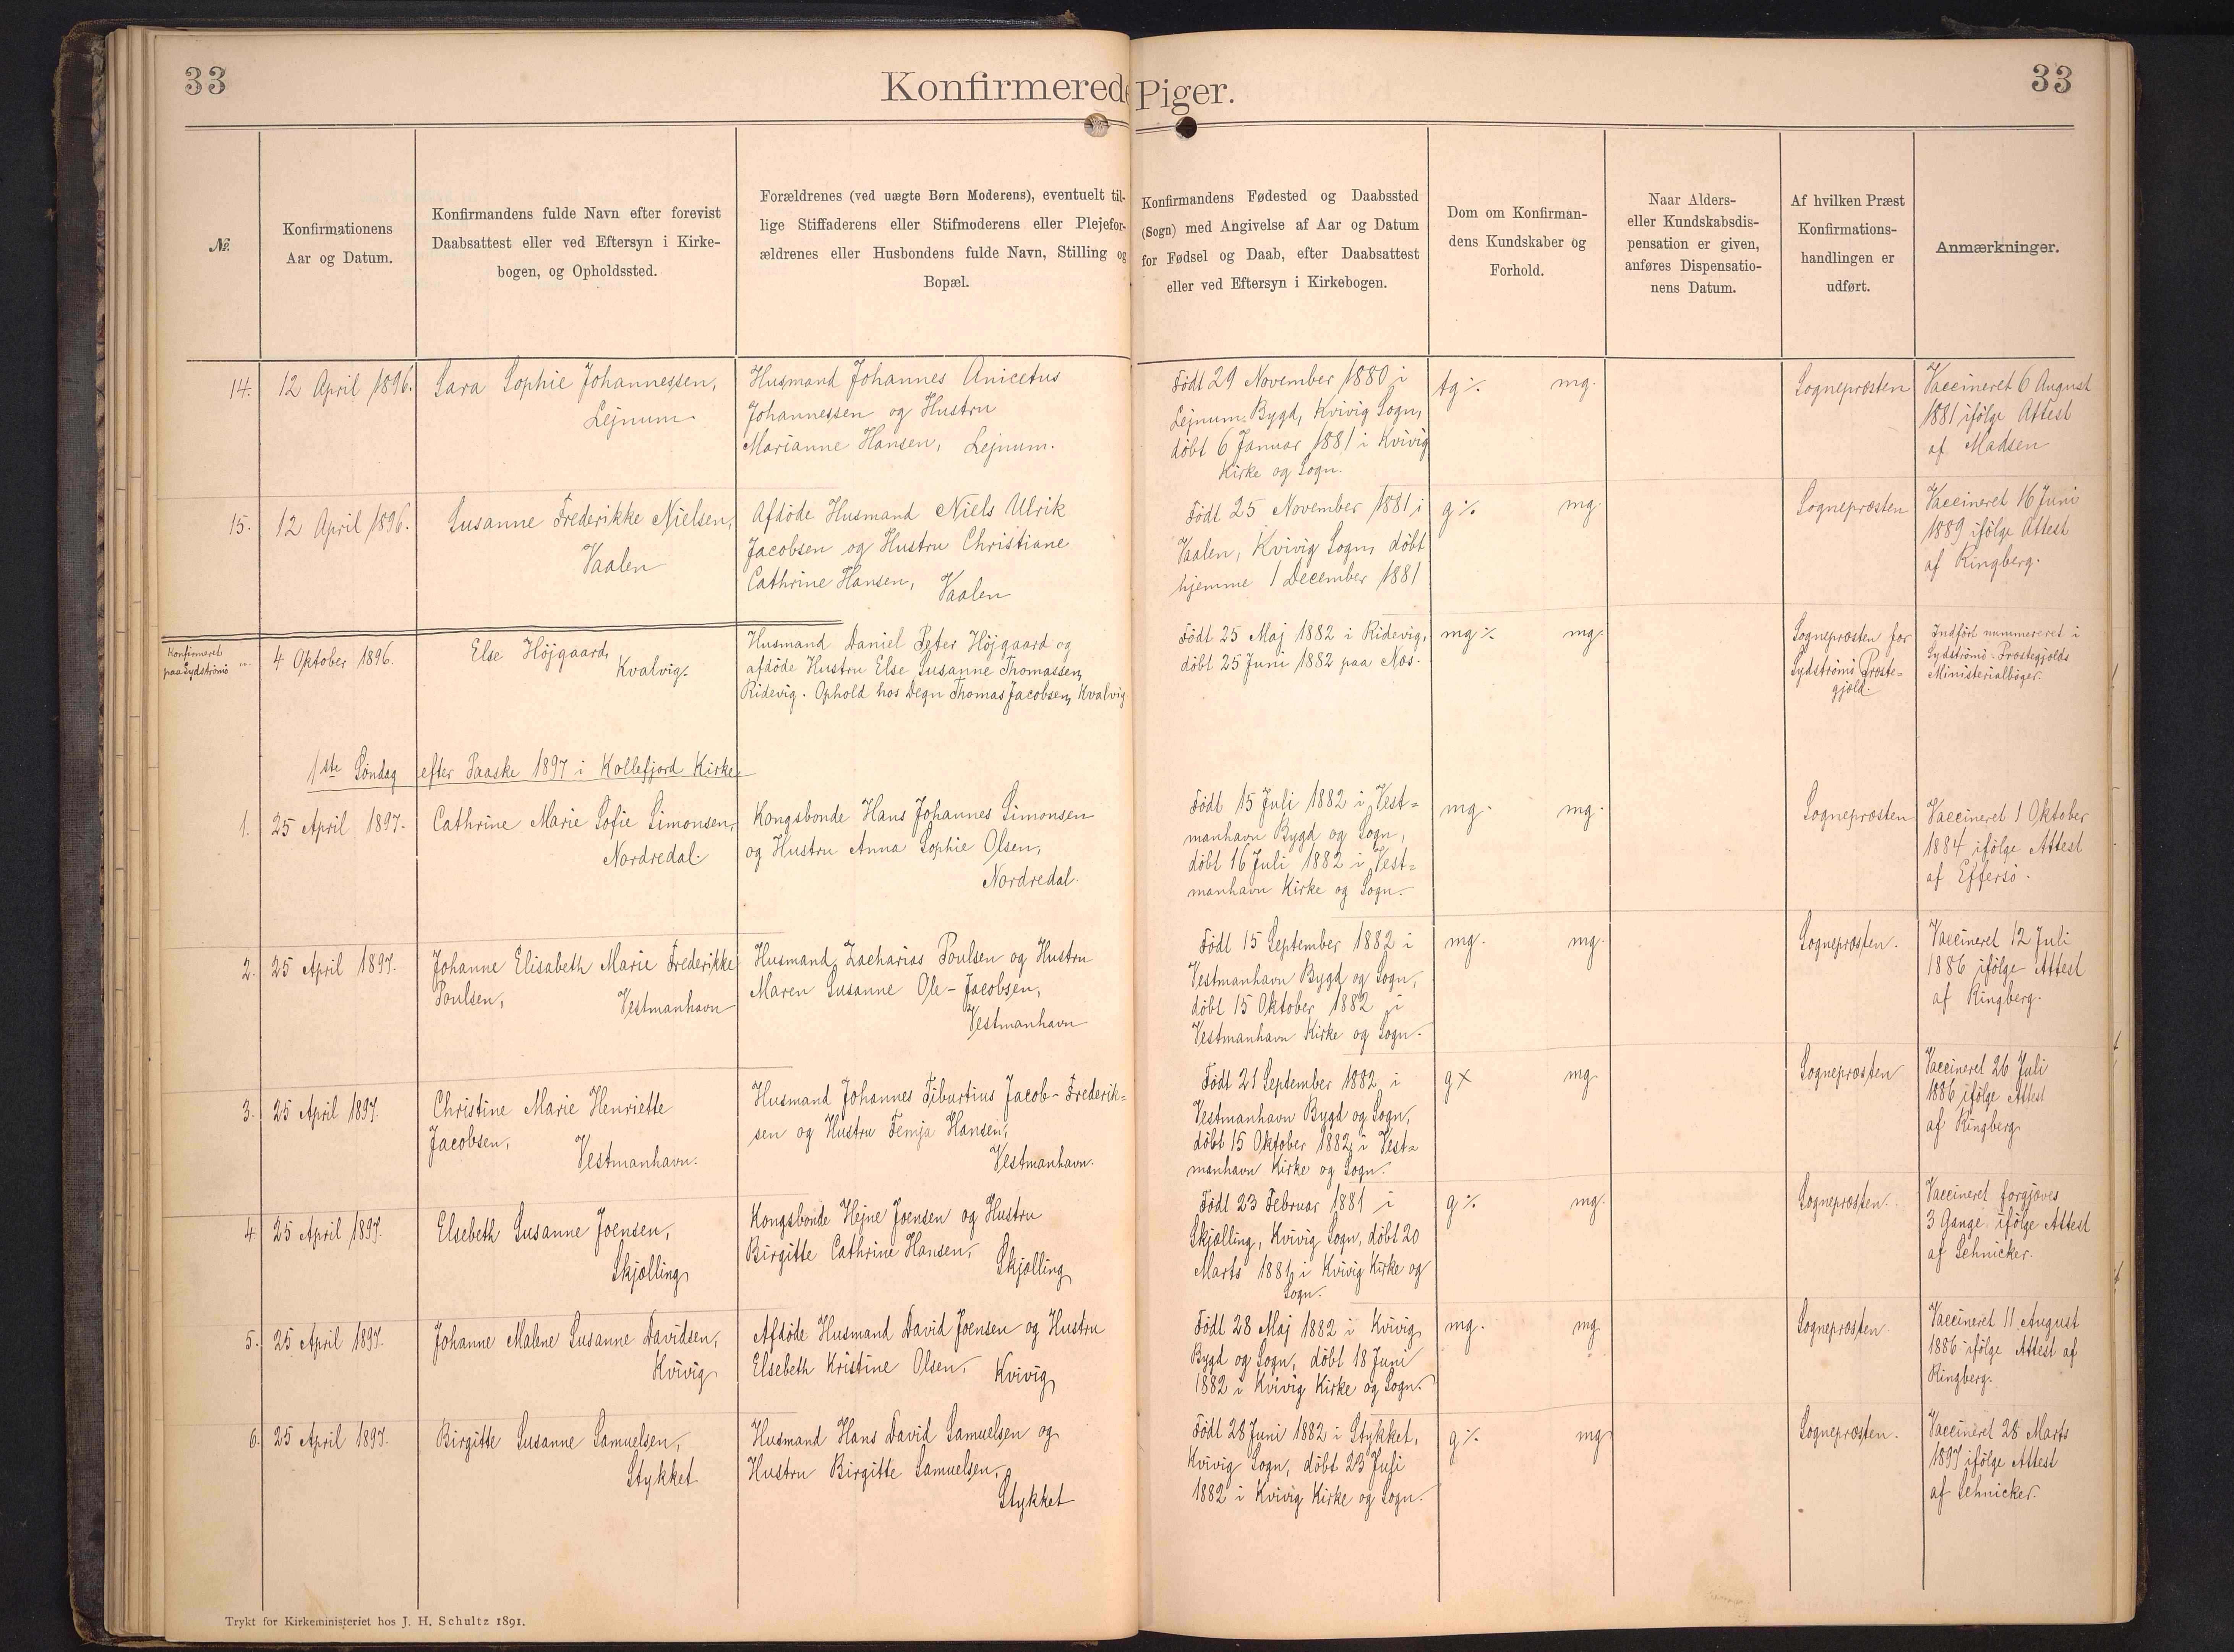 33
Konfirmerede Piger.
33
No.
Konfirmationens
Aar og Datum.
Konfirmandens fulde Navn efter forevist
Daabsattest eller ved Eftersyn i Kirke-
bogen, og Opholdssted.
Forældrenes (ved uægte Børn Moderens), eventuelt til-
lige Stiffaderens eller Stifmoderens eller Plejefor-
ældrenes eller Husbondens fulde Navn, Stilling og
Bopæl.
Konfirmandens Fødested og Daabssted
(Sogn) med Angivelse af Aar og Datum
for Fødsel og Daab, efter Daabsattest
eller ved Eftersyn i Kirkebogen.
Dom om Konfirman-
dens Kundskaber og
Forhold.
Naar Alders-
eller Kundskabsdis-
pensation er given,
anføres Dispensatio-
nens Datum.
Af hvilken Præst
Konfirmations-
handlingen er
udført.
Anmærkninger.
14.
12 April 1896.
Sara Sophie Johannessen,
Lejnum
Husmand Johannes Anicetus
Johannessen og Hustru
Marianne Hansen, Lejnum.
Født 29 November 1880 i
Lejnum Bygd, Kvivig Sogn,
døbt 6 Januar 1881 i Kvivig
Kirke og Sogn.
tg ⁒ mg.
Sognepræsten
Vaccineret 6 August
1881 ifølge Attest
af Madsen
15.
12 April 1896.
Susanne Frederikke Nielsen,
Vaalen
Afdøde Husmand Niels Ulrik
Jacobsen og Hustru Christiane
Cathrine Hansen, Vaalen
Født 25 November 1881 i
Vaalen, Kvivig Sogn, døbt
hjemme 1 December 1881
g ⁒ mg.
Sognepræsten
Vaccineret 16 Juni
1889 ifølge Attest
af Ringberg.
Konfirmeret
paa Sydstrømø
"
4 Oktober 1896.
Else Højgaard,
Kvalvig.
Husmand Daniel Peter Højgaard og
afdøde Hustru Else Susanne Thomassen,
Ridevig. Ophold hos Degn Thomas Jacobsen, Kvalvig
Født 25 Maj 1882 i Ridevig,
døbt 25 Juni 1882 paa Næs.
mg ⁒ mg.
Sognepræsten for
Sydstrømø Præste-
gjæld.
Indført nummereret i
Sydstrømø Præstegjælds
Ministerialbøger.
1ste Søndag efter Paaske 1897 i Kollefjord Kirke
1.
25 April 1897.
Cathrine Marie Sofie Simonsen,
Nordredal.
Kongsbonde Hans Johannes Simonsen
og Hustru Anna Sophie Olsen,
Nordredal.
Født 15 Juli 1882 i Vest=
manhavn Bygd og Sogn,
døbt 16 Juli 1882 i Vest=
manhavn Kirke og Sogn.
mg. mg.
Sognepræsten
Vaccineret 1 Oktober
1884 ifølge Attest
af Effersø.
2.
25 April 1897.
Johanne Elisabeth Marie Frederikke
Poulsen, Vestmanhavn
Husmand Zacharias Poulsen og Hustru
Maren Susanne Ole-Jacobsen,
Vestmanhavn
Født 15 September 1882 i
Vestmanhavn Bygd og Sogn,
døbt 15 Oktober 1882 i
Vestmanhavn Kirke og Sogn.
mg. mg.
Sognepræsten.
Vaccineret 12 Juli
1886 ifølge Attest
af Ringberg.
3.
25 April 1897.
Christine Marie Henriette
Jacobsen, Vestmanhavn.
Husmand Johannes Tiburtius Jacob-Frederik=
sen og Hustru Femja Hansen,
Vestmanhavn.
Født 21 September 1882 i
Vestmanhavn Bygd og Sogn,
døbt 15 Oktober 1882 i Vest=
manhavn Kirke og Sogn.
g× mg
Sognepræsten
Vaccineret 26 Juli
1886 ifølge Attest
af Ringberg
4
25 April 1897.
Elsebeth Susanne Joensen,
Skjælling
Kongsbonde Hejne Joensen og Hustru
Birgitte Cathrine Hansen,
Skjælling
Født 23 Februar 1881 i
Skjælling, Kvivig Sogn, døbt 20
Marts 1881 i Kvivig Kirke og
Sogn.
g ⁒ mg.
Sognepræsten.
Vaccineret forgjæves
3 Gange ifølge Attest
af Schnicker.
5.
25 April 1897.
Johanne Malene Susanne Davidsen,
Kvivig
Afdøde Husmand David Joensen og Hustru
Elsebeth Kristine Olsen, Kvivig
Født 28 Maj 1882 i Kvivig
Bygd og Sogn, døbt 18 Juni
1882 i Kvivig Kirke og Sogn.
mg. mg.
Sognepræsten.
Vaccineret 11 August
1886 ifølge Attest af
Ringberg.
6.
25 April 1897.
Birgitte Susanne Samuelsen,
Stykket
Husmand Hans David Samuelsen og
Hustru Birgitte Samuelsen,
Stykket
Født 28 Juni 1882 i Stykket,
Kvivig Sogn, døbt 23 Juli
1882 i Kvivig Kirke og Sogn.
g ⁒ mg
Sognepræsten.
Vaccineret 28 Marts
1897 ifølge Attest
af Schnicker.
Trykt for Kirkeministeriet hos J. H. Schultz 1891.